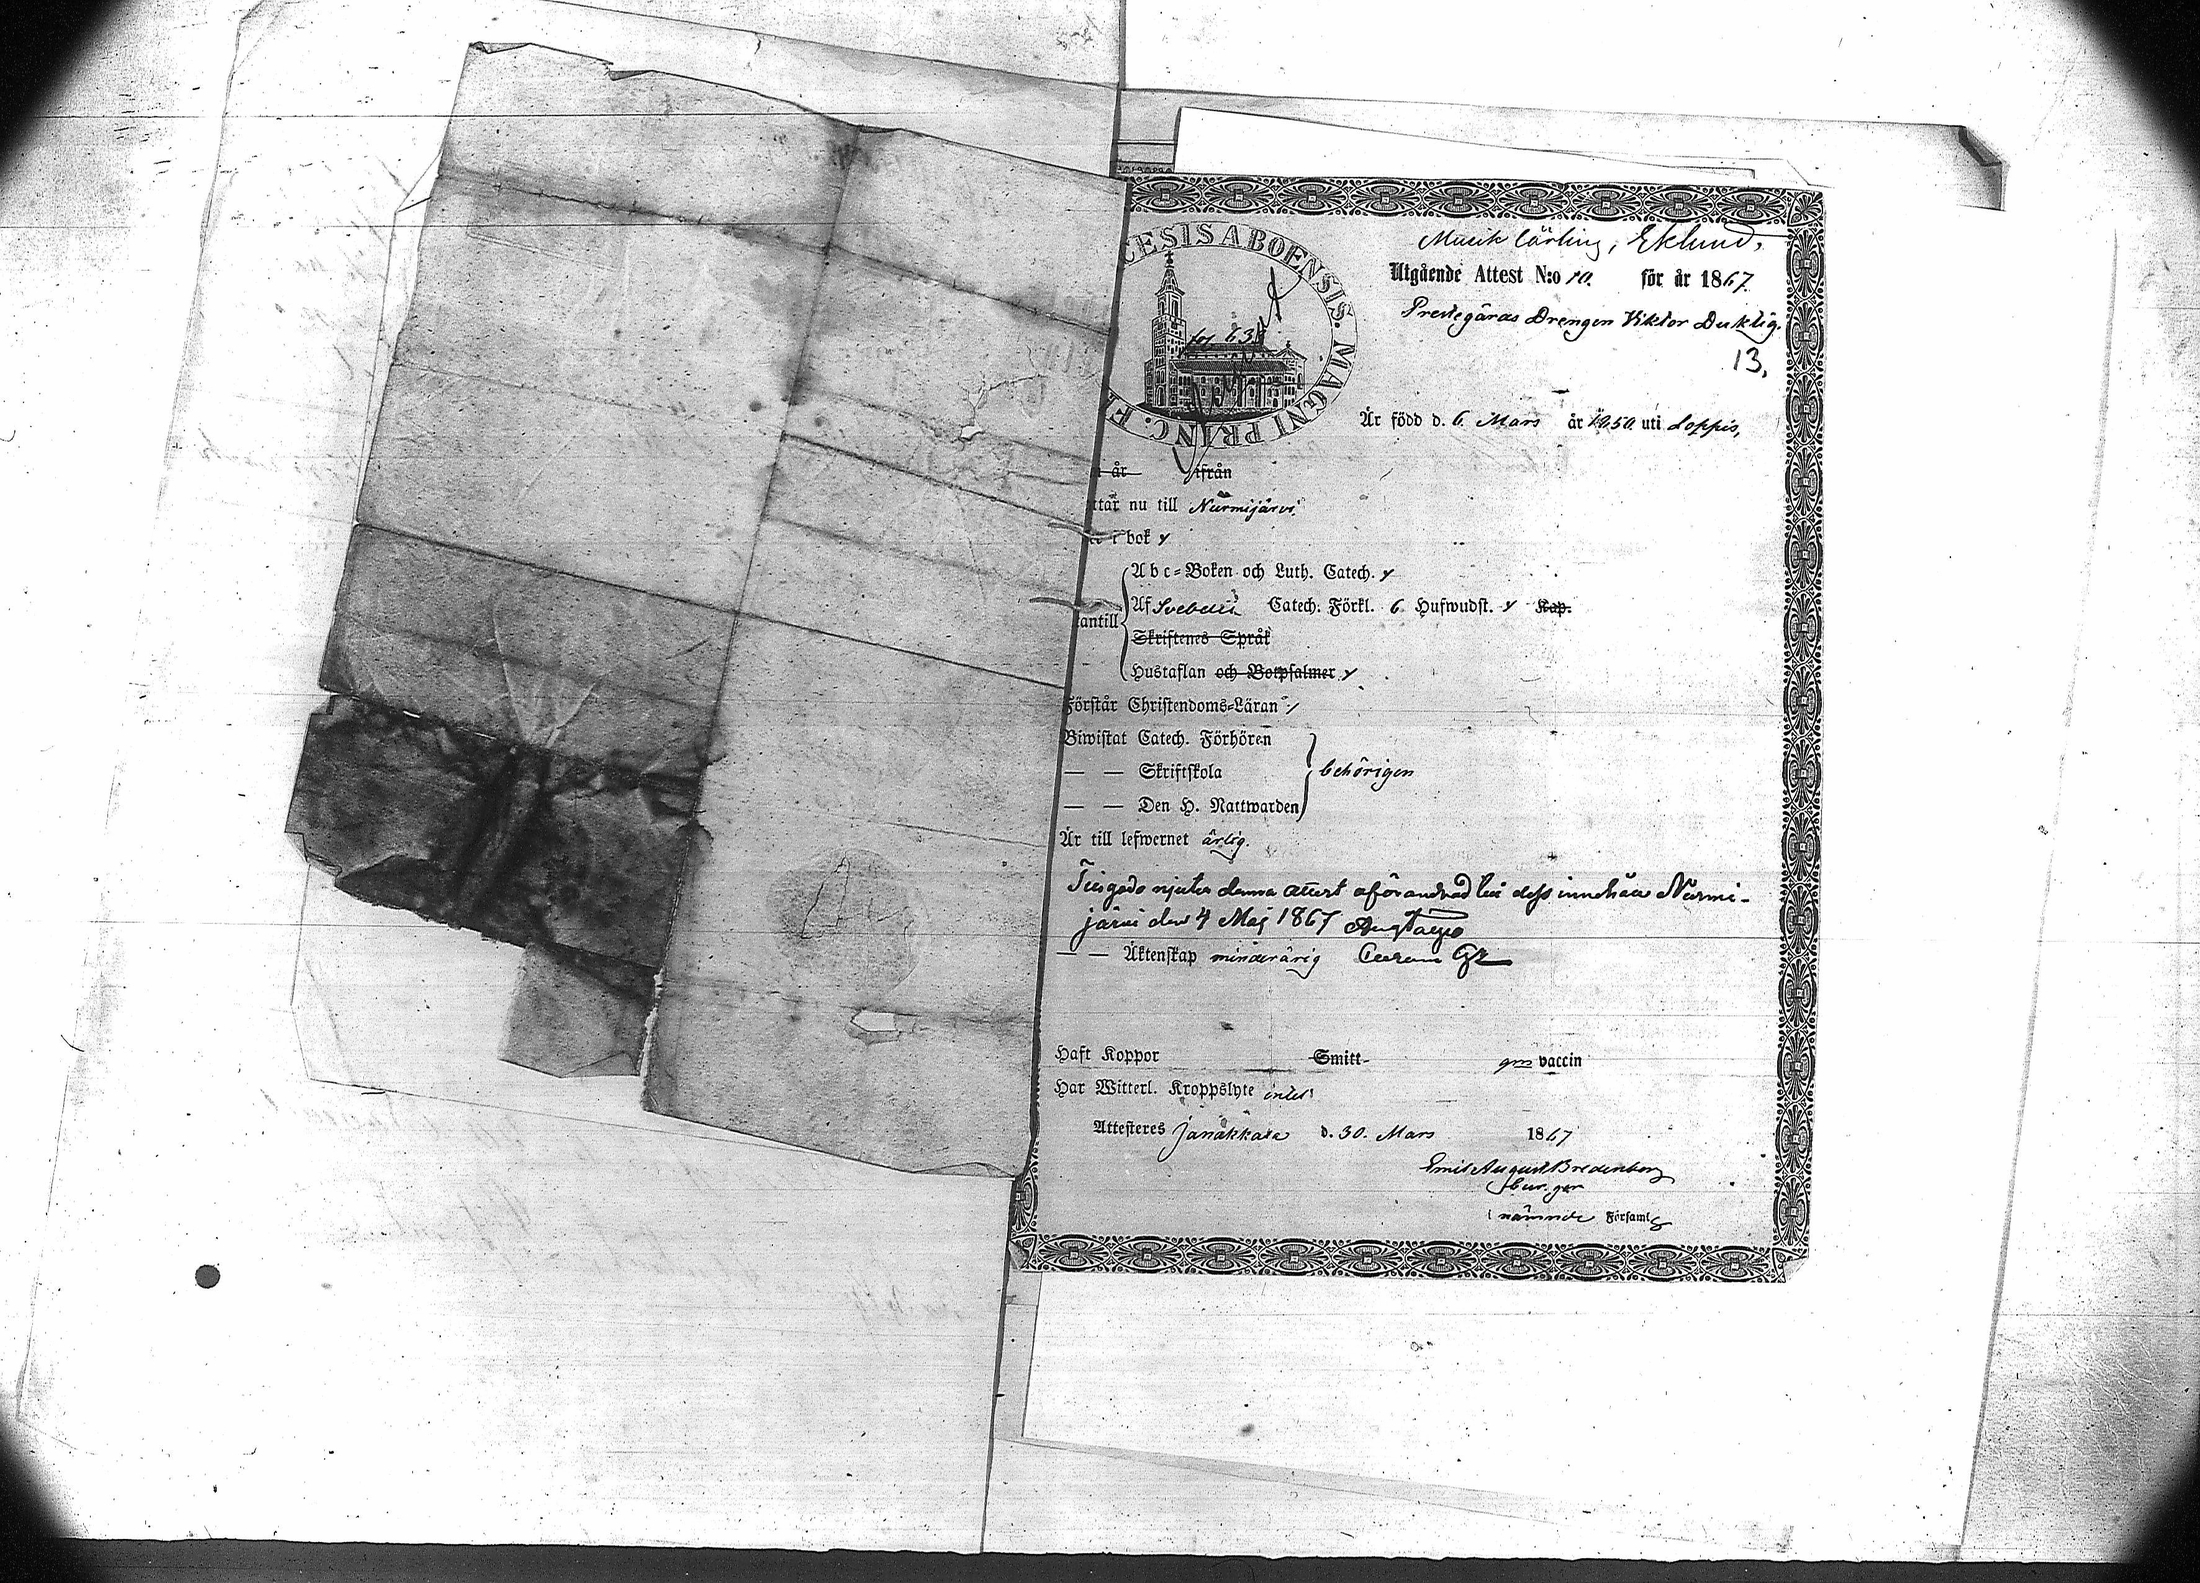 Musik Lärling, Eklund,
CESIS ABOENSIS. MAGNI PRINC. F
Utgående Attest N:o 10. för år 1867.
Prestegårds Drengen Viktor Duktig.
13.
fol 638
Är född d. 6 Mars år 1850 uti Loppis,
år ifrån
ttar nu till Nurmijärvi
i bok
Abc=Boken och Luth. Catech.
Af Svebelii Catech. Förkl. 6 Hufwudst. Kap.
tantill
Skriftenes Språk
Hustaflan och Botpsalmer
Förstår Christendoms=Läran
Biwistat Catech. Förhören
— — Skriftskola behörigen
— — Den H. Nattwarden
Är till lefwernet ärlig.
denna attest oförändrad dess Nurmi-
järvi den 4 Maj 1867
— — Äktenskap minderårig
Haft Koppor Smitt- vaccin
Har Witterl. Kroppslyte intet
Attesteres Janakkala d. 30. Mars 1867
Emil August Bredenberg
nämnde Församl